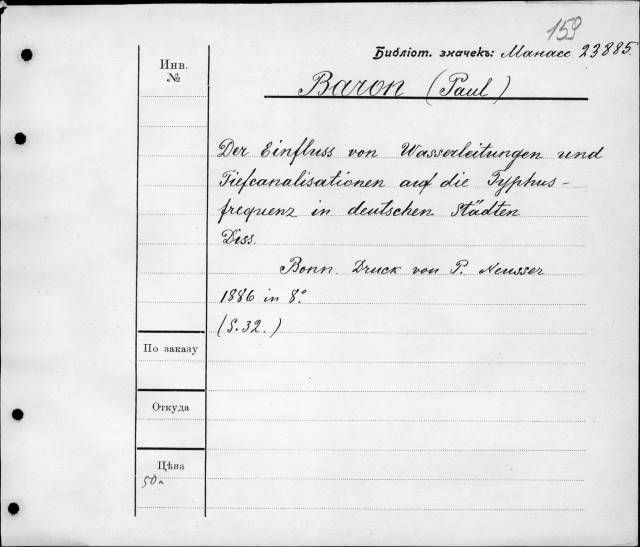 159
Библіот. значекъ: Манасс. 23885.
Инв.
№
Baron (Paul)
Der Einfluss von Wasserleitungen und
Tiefcanalisationen auf die Typhus-
frequenz in deutschen Städten
Diss.
Bonn. Druck von P. Neusser
1886 in 8°.
(S. 32.)
По заказу
Откуда
Цѣна
50